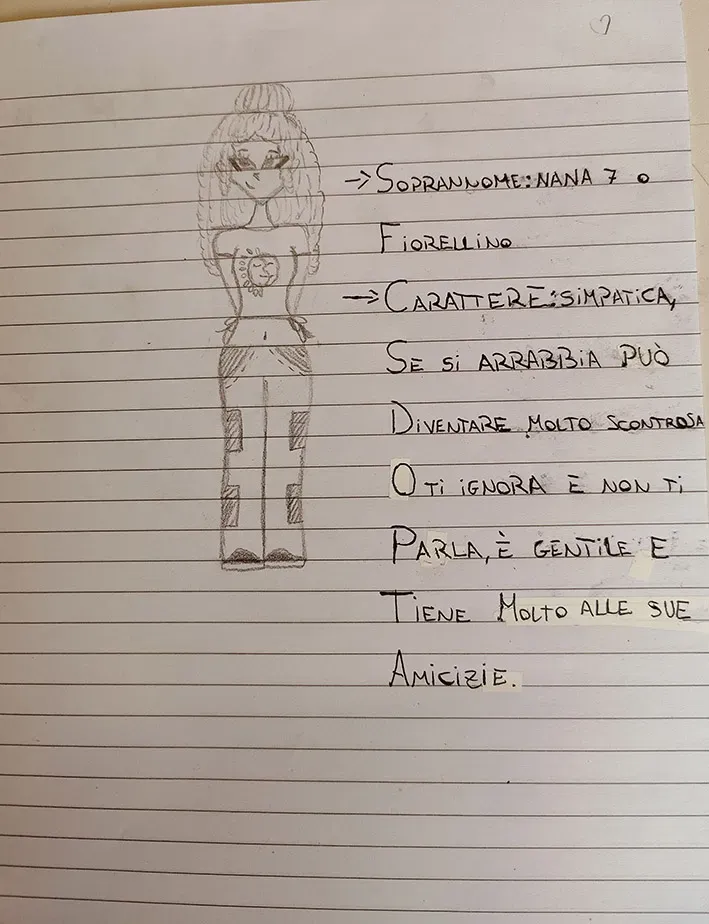 →SOPRANNOME:NANA 7 O
FIORELLINO
→CARATTERE:SIMPATICA,
SE SI ARRABBIA PUÒ
DIVENTARE MOLTO SCONTROSA
O TI IGNORA E NON TI
PARLA, È GENTILE E
TIENE MOLTO ALLE SUE
AMICIZIE.